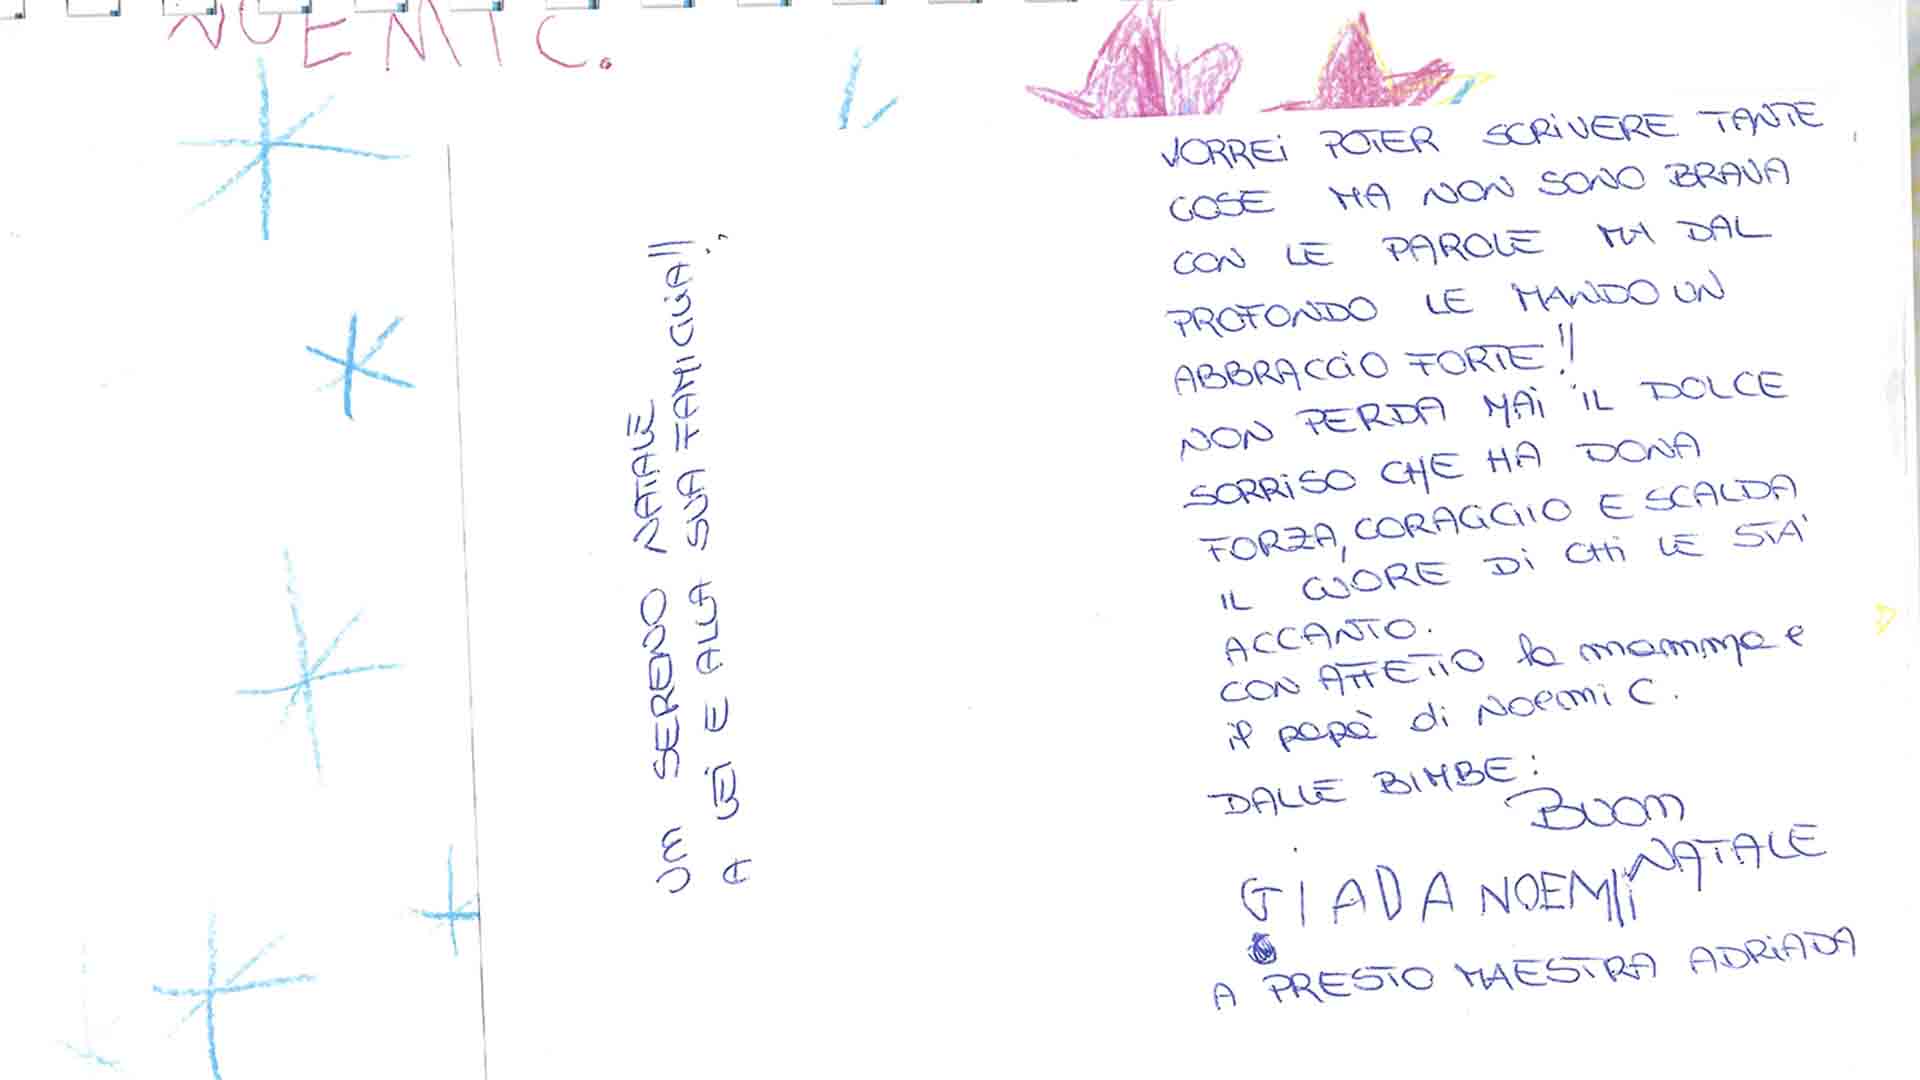 NOEMI C.
UN SERENO NATALE
A LEI E ALLA SUA FAMIGLIA!!
VORREI POTER SCRIVERE TANTE
COSE MA NON SONO BRAVA
CON LE PAROLE MA DAL
PROFONDO LE MANDO UN
ABBRACCIO FORTE!!
NON PERDA MAI IL DOLCE
SORRISO CHE HA DONA
FORZA, CORAGGIO E SCALDA
IL CUORE DI CHI LE STA'
ACCANTO.
CON AFFETTO la mamma e
il papà di Noemi C.
DALLE BIMBE:
BUON
NATALE
GIADA NOEMI
A PRESTO MAESTRA ADRIADA